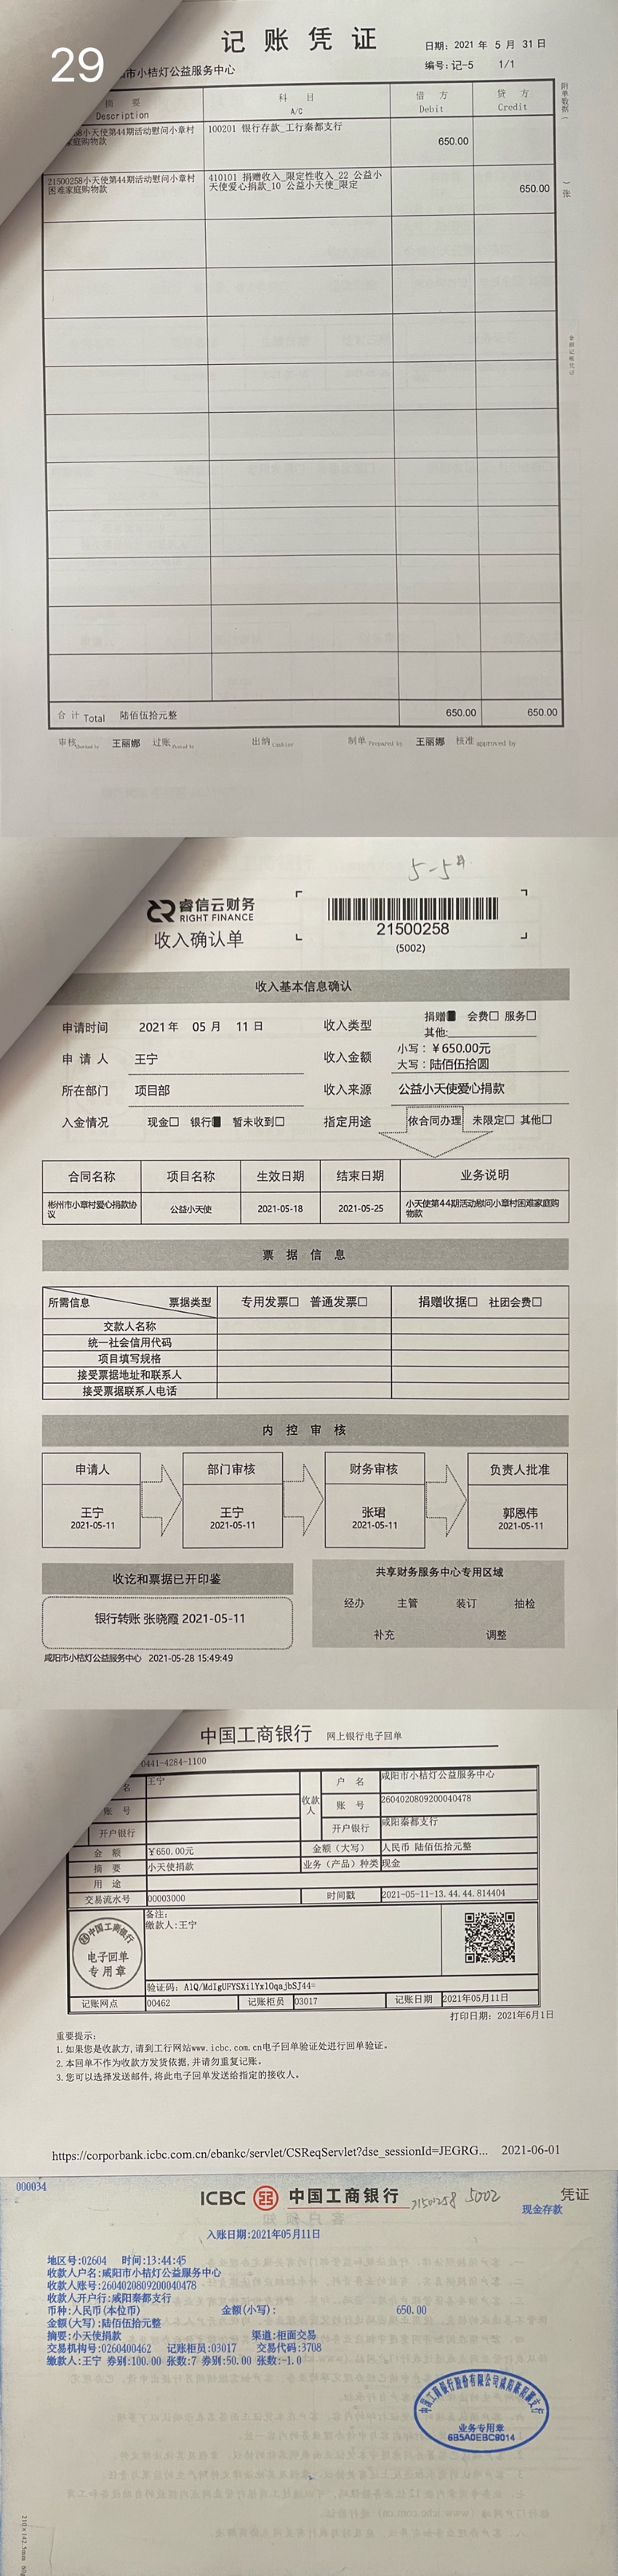 29
记 账 凭 证
日期: 2021 年 5 月 31 日
市小桔灯公益服务中心
编号: 记-5 1/1
附单数据( )张
摘 要 科 目 借 方 贷 方
Description A/C Debit Credit
258小天使第44期活动慰问小章村 100201 银行存款_工行秦都支行 650.00
家庭购物款
21500258小天使第44期活动慰问小章村 410101 捐赠收入_限定性收入_22 公益小 650.00
困难家庭购物款 天使爱心捐款_10 公益小天使_限定
合 计 Total 陆佰伍拾元整 650.00 650.00
审核 王丽娜 过账 出纳 Cashier 制单 Prepared by 王丽娜 核准 approved by
睿信云财务
RIGHT FINANCE
收入确认单
21500258
(5002)
收入基本信息确认
申请时间 2021年 05月 11日 收入类型 捐赠■ 会费□ 服务□
其他:
申 请 人 王宁 收入金额 小写:¥650.00元
大写:陆佰伍拾圆
所在部门 项目部 收入来源 公益小天使爱心捐款
入金情况 现金□ 银行■ 暂未收到□ 指定用途 依合同办理 未限定□ 其他□
合同名称 项目名称 生效日期 结束日期 业务说明
彬州市小章村爱心捐款协 公益小天使 2021-05-18 2021-05-25 小天使第44期活动慰问小章村困难家庭购
议 物款
票 据 信 息
所需信息 票据类型 专用发票□ 普通发票□ 捐赠收据□ 社团会费□
交款人名称
统一社会信用代码
项目填写规格
接受票据地址和联系人
接受票据联系人电话
内 控 审 核
申请人 部门审核 财务审核 负责人批准
王宁 王宁 张珺 郭恩伟
2021-05-11 2021-05-11 2021-05-11 2021-05-11
收讫和票据已开印鉴 共享财务服务中心专用区域
经办 主管 装订 抽检
银行转账 张晓霞 2021-05-11
补充 调整
咸阳市小桔灯公益服务中心 2021-05-28 15:49:49
中国工商银行 网上银行电子回单
0441-4284-1100
名 王宁 收款人 户 名 咸阳市小桔灯公益服务中心
账 号 账 号 2604020809200040478
开户银行 开户银行 咸阳秦都支行
金 额 ¥650.00元 金额(大写) 人民币 陆佰伍拾元整
摘 要 小天使捐款 业务(产品)种类 现金
用 途
交易流水号 00003000 时间戳 2021-05-11-13.44.44.814404
中国工商银行
电子回单
专用章
备注:
缴款人:王宁
验证码: A1Q/MdIgUFYSXi1Yx10qajbSJ44=
记账网点 00462 记账柜员 03017 记账日期 2021年05月11日
打印日期: 2021年6月1日
重要提示:
1.如果您是收款方,请到工行网站www.icbc.com.cn电子回单验证处进行回单验证。
2.本回单不作为收款方发货依据,并请勿重复记账。
3.您可以选择发送邮件,将此电子回单发送给指定的接收人。
https://corporbank.icbc.com.cn/ebankc/servlet/CSReqServlet?dse_sessionId=JEGRG... 2021-06-01
000034
ICBC 中国工商银行 21500258 5002 凭证
现金存款
入账日期:2021年05月11日
地区号:02604 时间:13:44:45
收款人户名:咸阳市小桔灯公益服务中心
收款人账号:2604020809200040478
收款人开户行:咸阳秦都支行
币种:人民币(本位币) 金额(小写): 650.00
金额(大写):陆佰伍拾元整
摘要:小天使捐款 渠道:柜面交易
交易机构号:0260400462 记账柜员:03017 交易代码:3708
缴款人:王宁 券别:100.00 张数:7 券别:50.00 张数:-1.0
业务专用章
6B5A0EBC9014